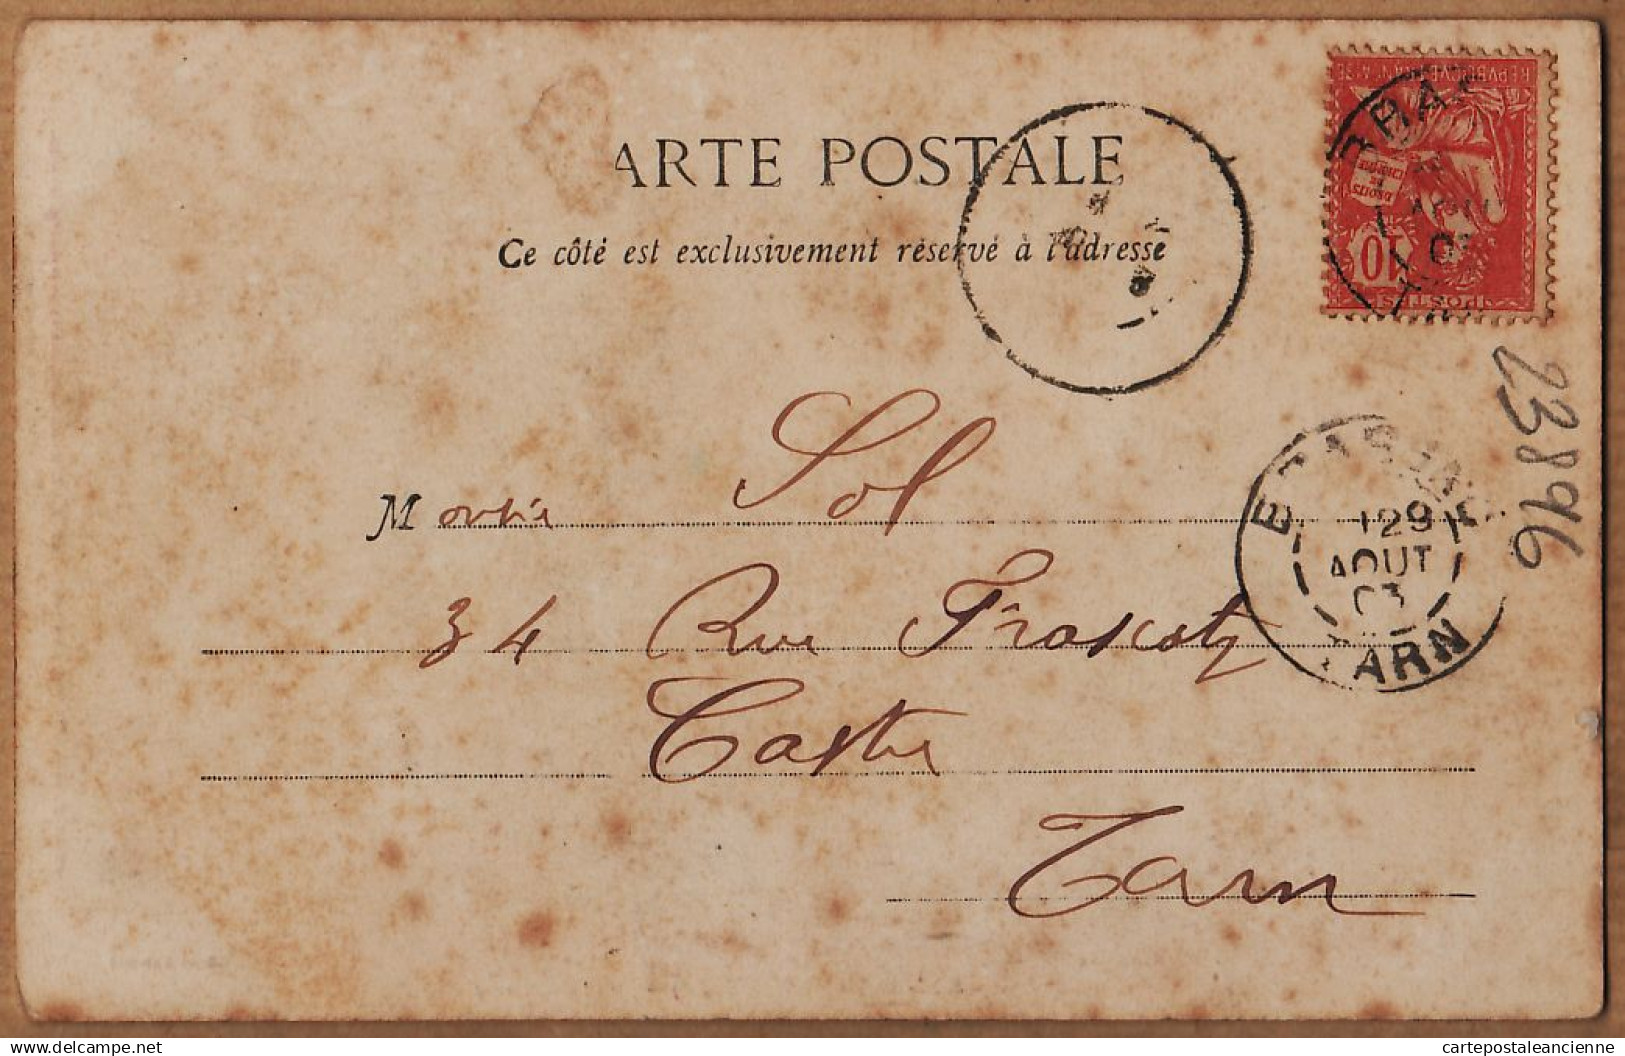 ARTE POSTALE
Ce côté est exclusivement réservé à l'adresse
REPVBLIQVE FRANÇAISE
DROITS DE L'HOMME
10
POSTES
23896
29
AOUT
03
TARN
Sol
M
34 Rue
Castre
Tarn
delcampe.net
cartepostaleancienne